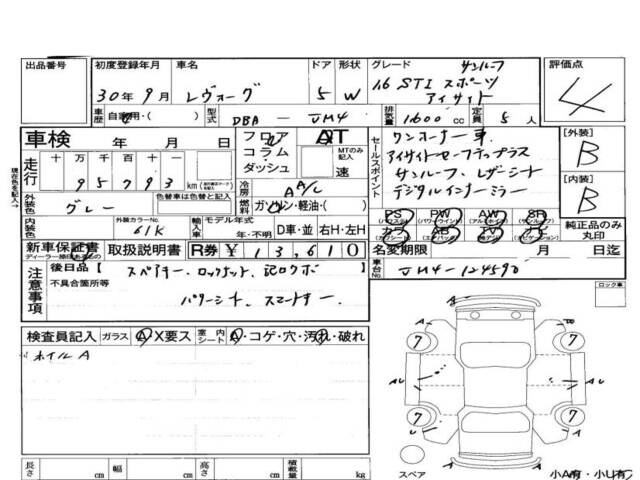 出品番号 初度登録年月 車名 ドア 形状 グレード サンルーフ 評価点
30年9月 レヴォーグ 5 W 1.6 STI スポーツ 4
アイサイト
車歴 自家用・( ) 型式 DBA - VM4 排気量 1600 cc 定員 5 人
車検 年 月 日 フロア AT ワンオーナー車 [外装]
コラム MTのみ記入 アイサイトセーフティプラス B
走行 十 万 千 百 十 一 ダッシュ 速 セールスポイント サンルーフ・レザーシート [内装]
95793 km 冷房 AA/C デジタルインナーミラー B
外装色 グレー 色替車は色替と記入 燃料 ガソリン・軽油・( )
PS PW AW SR
内装色 外装カラーNo. 61K 輸入車 モデル年式 年・不明 D車・並 右H・左H 純正品のみ丸印
新車保証書 取扱説明書 R券 ¥13,610 名変期限 月 日迄
注意事項 後日品【 スペアキー・ロックナット、記ロクボ 】 車台No. VM4-124590
不具合箇所等 ロック車
パワーシート、スマートキー.
検査員記入 ガラス A・X要ス 室内シート A・コゲ・穴・汚れ・破れ
ホイルA
A
7 7
AU AU
7 7
A
スペア 小A有・小U有
長さ cm 幅 cm 高さ cm 積載量 kg
現在色を記入